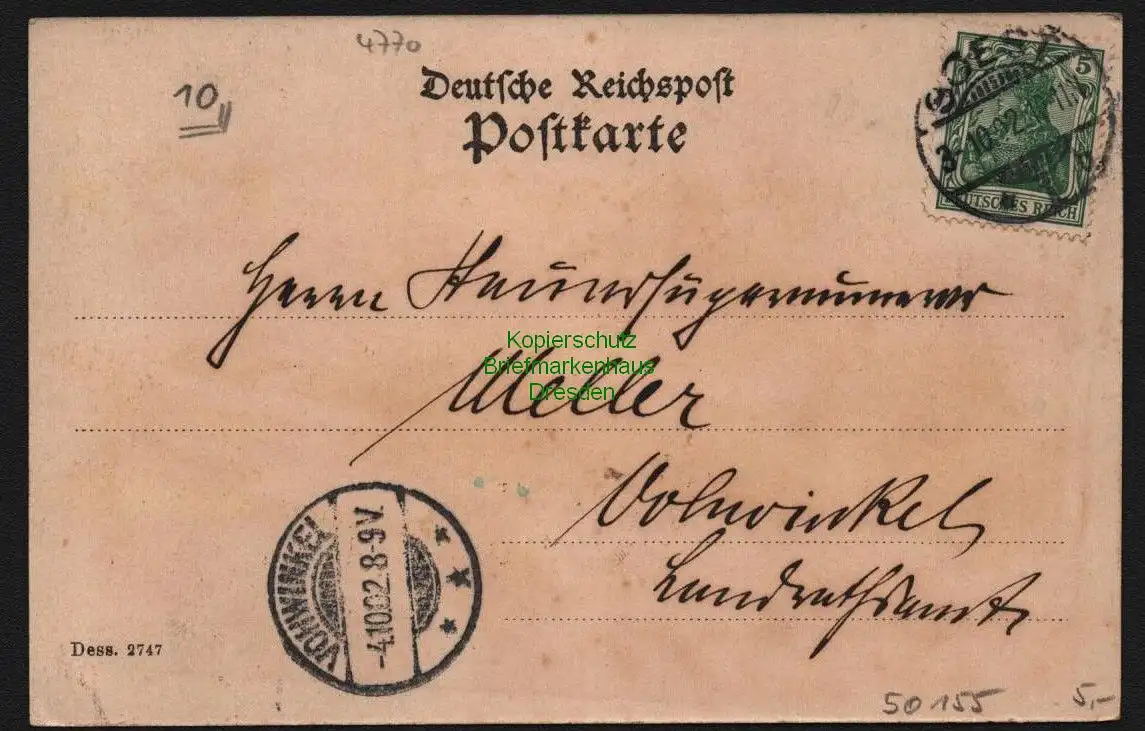 4770
10
Deutsche Reichspost
Postkarte
SOEST
3.10.02
5
DEUTSCHES REICH
Herrn
Kopierschutz
Briefmarkenhaus
Dresden
Meller
Vohwinkel
Landrathsamt
VOHWINKEL
-4.10.02.8-9V.
Dess. 2747
50155
5,-